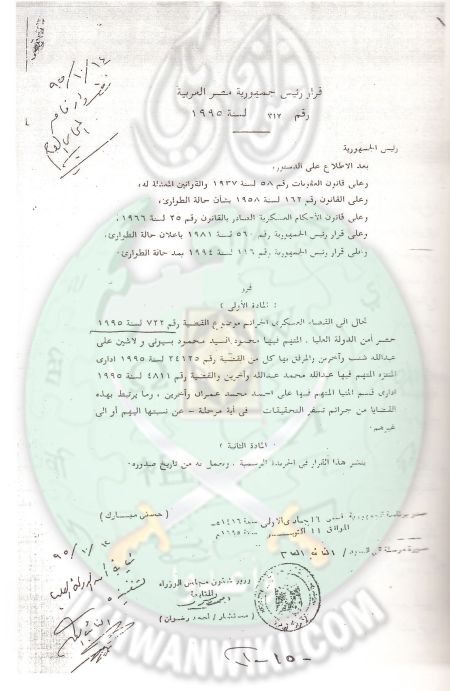 ٩٥/١٠/١٤
قرار رئيس جمهورية مصر العربية
رقم ٣١٢ لسنة ١٩٩٥
رئيس الجمهورية
بعد الاطلاع على الدستور،
وعلى قانون العقوبات رقم ٥٨ لسنة ١٩٣٧ والقوانين المعدلة له،
وعلى القانون رقم ١٦٢ لسنة ١٩٥٨ بشأن حالة الطوارئ،
وعلى قانون الأحكام العسكرية الصادر بالقانون رقم ٢٥ لسنة ١٩٦٦
وعلى قرار رئيس الجمهورية رقم ٥٦٠ لسنة ١٩٨١ باعلان حالة الطوارئ،
وعلى قرار رئيس الجمهورية رقم ١١٦ لسنة ١٩٩٤ بمد حالة الطوارئ.
قرر
( المادة الأولى )
تحال الى القضاء العسكرى الجرائم موضوع القضية رقم ٧٢٢ لسنة ١٩٩٥
حصر أمن الدولة العليا ، المتهم فيها محمود السيد محمود بسيونى و لاشين على
عبدالله شنب وآخرين والمرفق بها كل من القضية رقم ٢٤١٢٥ لسنة ١٩٩٥ ادارى
المنتزه المتهم فيها عبدالله محمد عبدالله وآخرين والقضية رقم ٤٨١١ لسنة ١٩٩٥
ادارى قسم المنيا المتهم فيها على أحمد محمد عمران وآخرين ، وما يرتبط بهذه
القضايا من جرائم تسفر التحقيقات - فى أية مرحلة - عن نسبتها اليهم أو الى
غيرهم.
( المادة الثانية )
ينشر هذا القرار فى الجريدة الرسمية ، ويعمل به من تاريخ صدوره.
( حسنى مبارك )
صدر برئاسة الجمهورية فى ١٦ جمادى الاولى سنة ١٤١٦هـ
الموافق ١١ أكتوبر سنة ١٩٩٥م
وزير شئون مجلس الوزراء
والمتابعة
( مستشار / أحمد رضوان )
-١٥-
IKHWANWIKI.COM